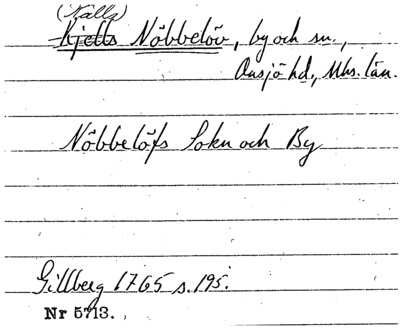 (Källs)
Kjells Nöbbelöv, by och sn.,
Onsjö hd., Mhs. län.
Nöbbelöfs Sokn och By
Gillberg 1765 s. 195.
Nr 5713.